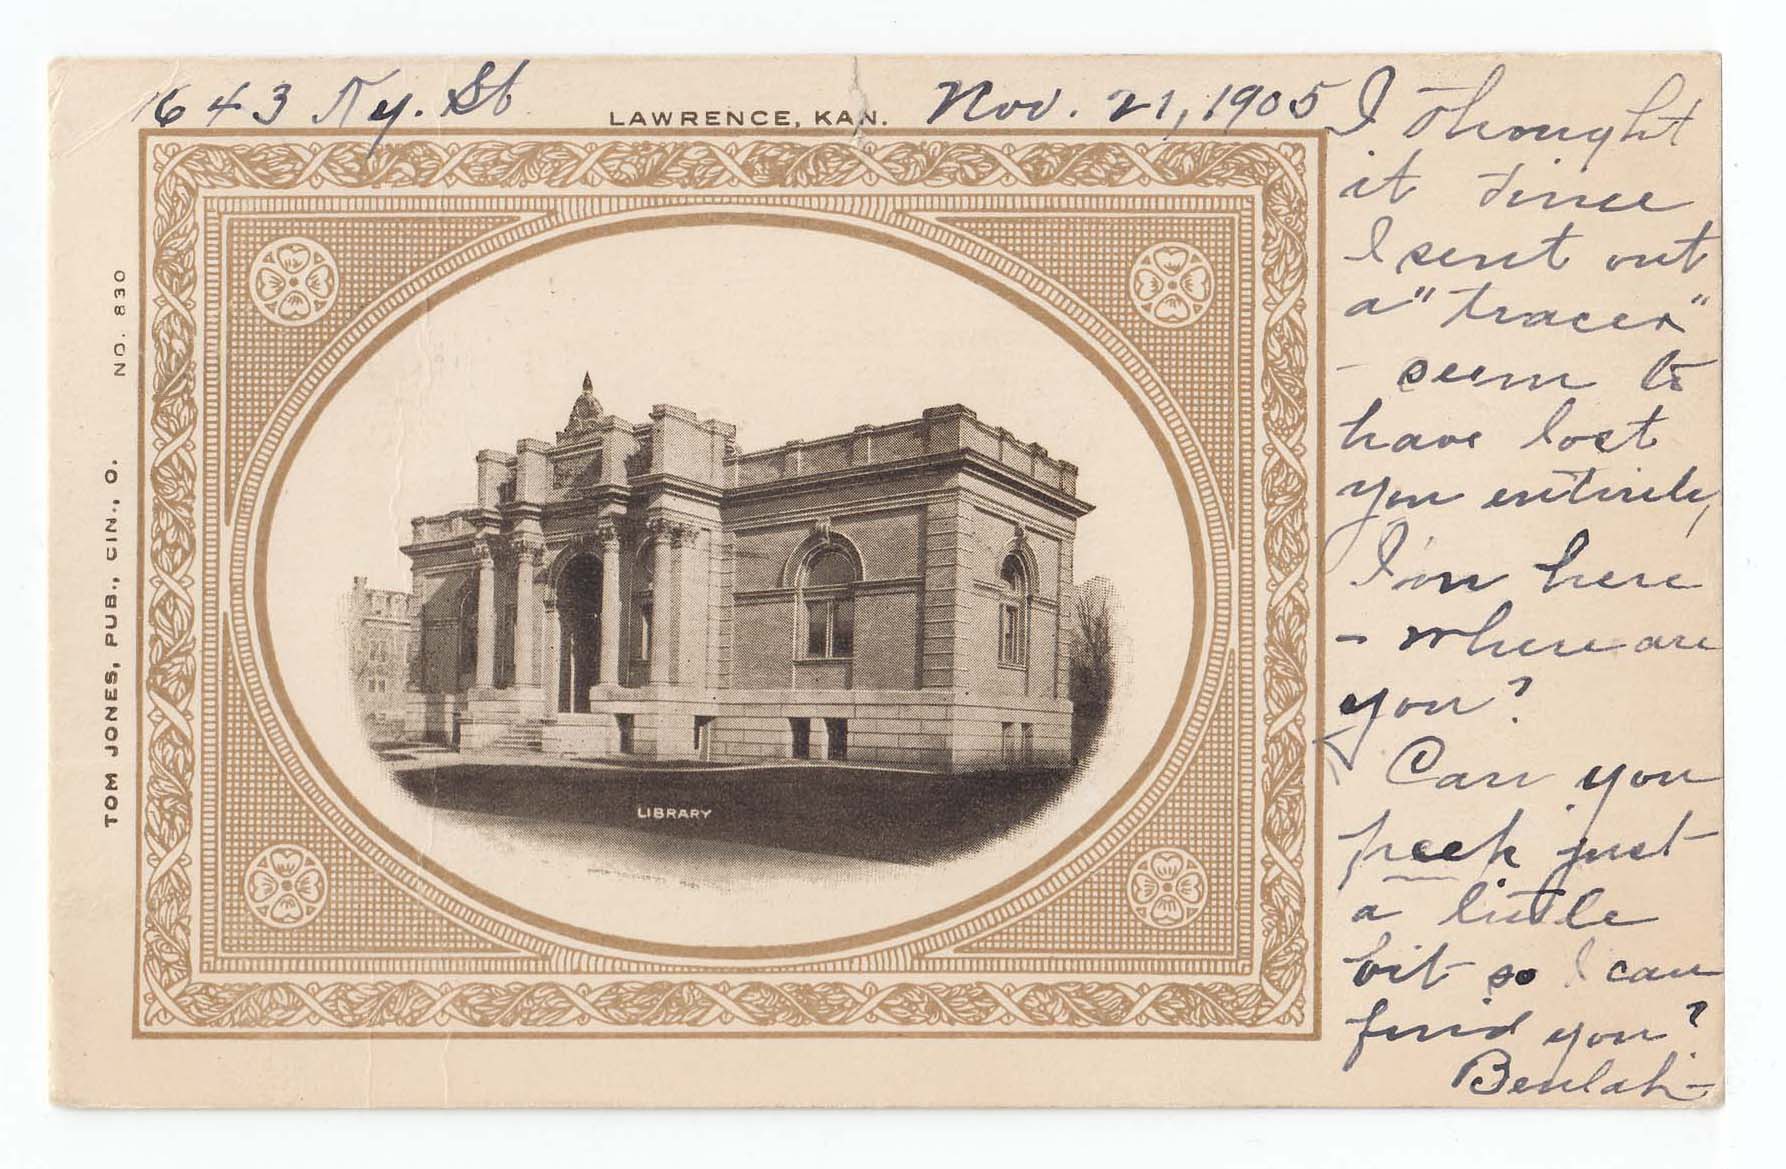 1643 N.y. St
LAWRENCE, KAN.
Nov. 21, 1905
I thought
it time
I sent out
a "tracer"
- seem to
have lost
you entirely,
I'm here
- where are
you?
Can you
peep just
a little
bit so I can
find you?
Beulah-
NO. 830
TOM JONES, PUB., CIN., O.
LIBRARY